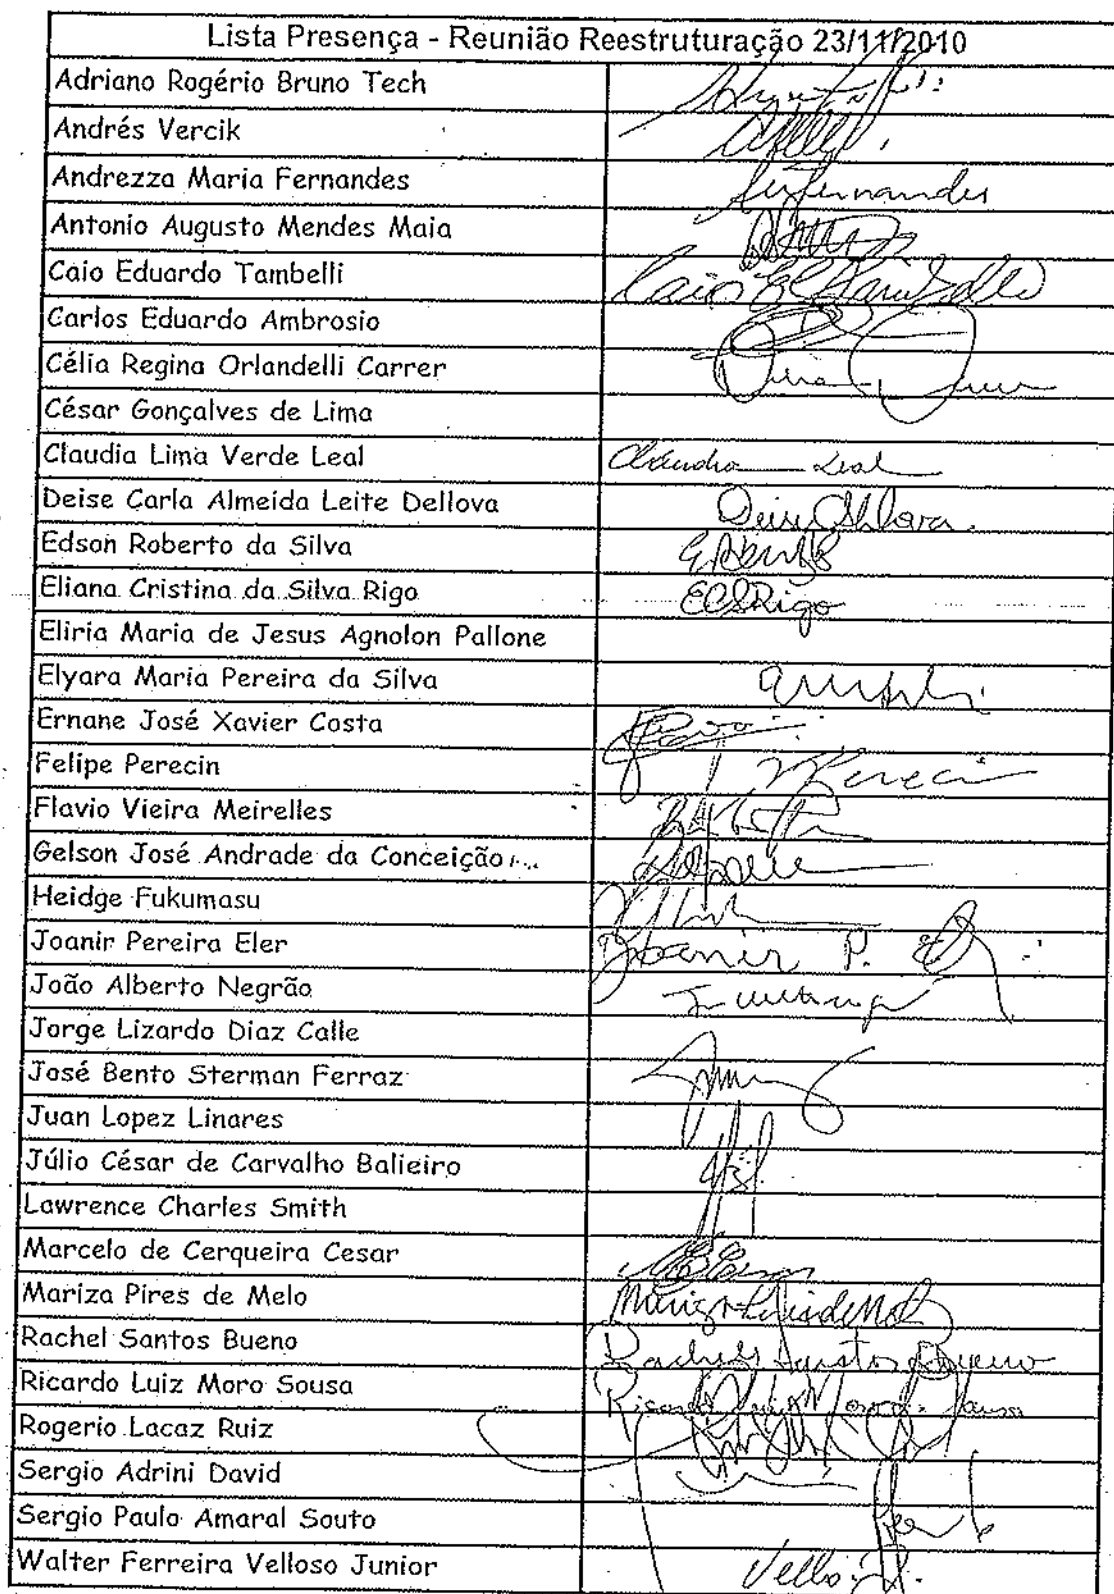 Lista Presença - Reunião Reestruturação 23/11/2010
Adriano Rogério Bruno Tech
Andrés Vercik
Andrezza Maria Fernandes Fernandes
Antonio Augusto Mendes Maia
Caio Eduardo Tambelli Caio E Tambelli
Carlos Eduardo Ambrosio
Célia Regina Orlandelli Carrer
César Gonçalves de Lima
Claudia Lima Verde Leal Claudia Leal
Deise Carla Almeida Leite Dellova Deise
Edson Roberto da Silva
Eliana Cristina da Silva Rigo ECSRigo
Eliria Maria de Jesus Agnolon Pallone
Elyara Maria Pereira da Silva
Ernane José Xavier Costa
Felipe Perecin Perecin
Flavio Vieira Meirelles
Gelson José Andrade da Conceição
Heidge Fukumasu
Joanir Pereira Eler Joanir P.
João Alberto Negrão
Jorge Lizardo Diaz Calle
José Bento Sterman Ferraz
Juan Lopez Linares
Júlio César de Carvalho Balieiro
Lawrence Charles Smith
Marcelo de Cerqueira Cesar
Mariza Pires de Melo
Rachel Santos Bueno Rachel Santos Bueno
Ricardo Luiz Moro Sousa Ricardo Luiz Moro de Sousa
Rogerio Lacaz Ruiz
Sergio Adrini David
Sergio Paulo Amaral Souto
Walter Ferreira Velloso Junior Velloso Jr.